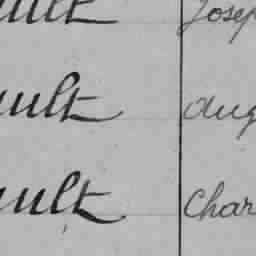 ault Josep
ault aug
ault Char